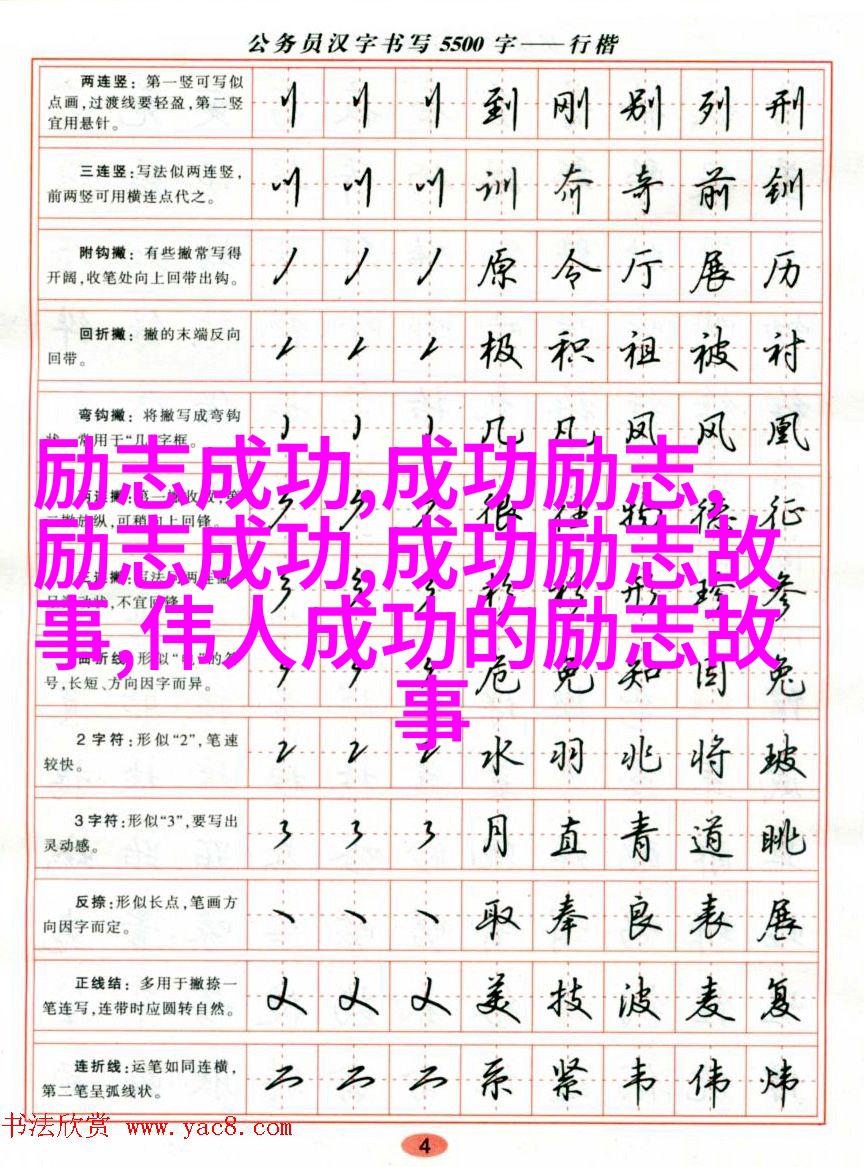 公务员汉字书写5500字——行楷
两连竖：第一竖可写似
点画,过渡线要轻盈,第二竖
宜用悬针。
到 刚 别 列 刑
三连竖:写法似两连竖,
前两竖可用横连点代之。
训 奔 奇 前 钏
附钩撇：有些撇常写得
开阔,收笔处向上回带出钩。
原 令 厅 展 历
回折撇：撇的末端反向
回带。
极 积 祖 被 衬
弯钩撇：将撇写成弯钩
几 凡 凤 风 凰
励志成功,成功励志,
励志成功,成功励志故
事,伟人成功的励志故
事
征
参
号,长短、方向因字而异。
危 免 知 囱 兔
2字符:形似“2”,笔速
较快。
水 羽 兆 将 玻
3字符:形似“3”,要写出
灵动感。
月 直 青 道 眺
反捺:形似长点,笔画方
向因字而定。
取 奉 良 表 展
正线结：多用于撇捺一
笔连写,连带时应圆转自然。
美 技 波 麦 复
连折线:运笔如同连横,
第二笔呈弧线状。
系 紧 韦 伟 炜
书法欣赏 www.yac8.com
4